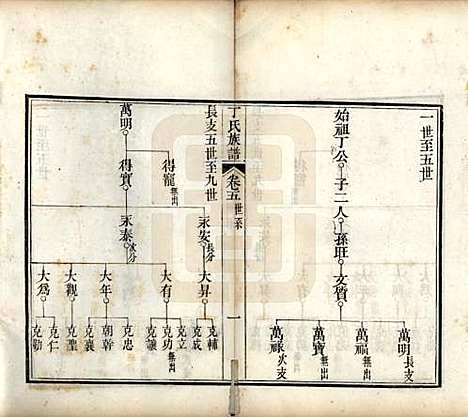 一世至五世
始祖丁公 子二人 孫旺 文質
萬明長支
萬福無出
萬寶無出
萬祿次支
丁氏族譜 卷五 世系 一
長支五世至九世
萬明 得寵無出
得實 永安長分
永泰次分
大昇 大有 大年 大觀 大為
克輔
克成
克立無出
克功
克讓
克忠
朝幹
克襄
克聖
克仁
克勤